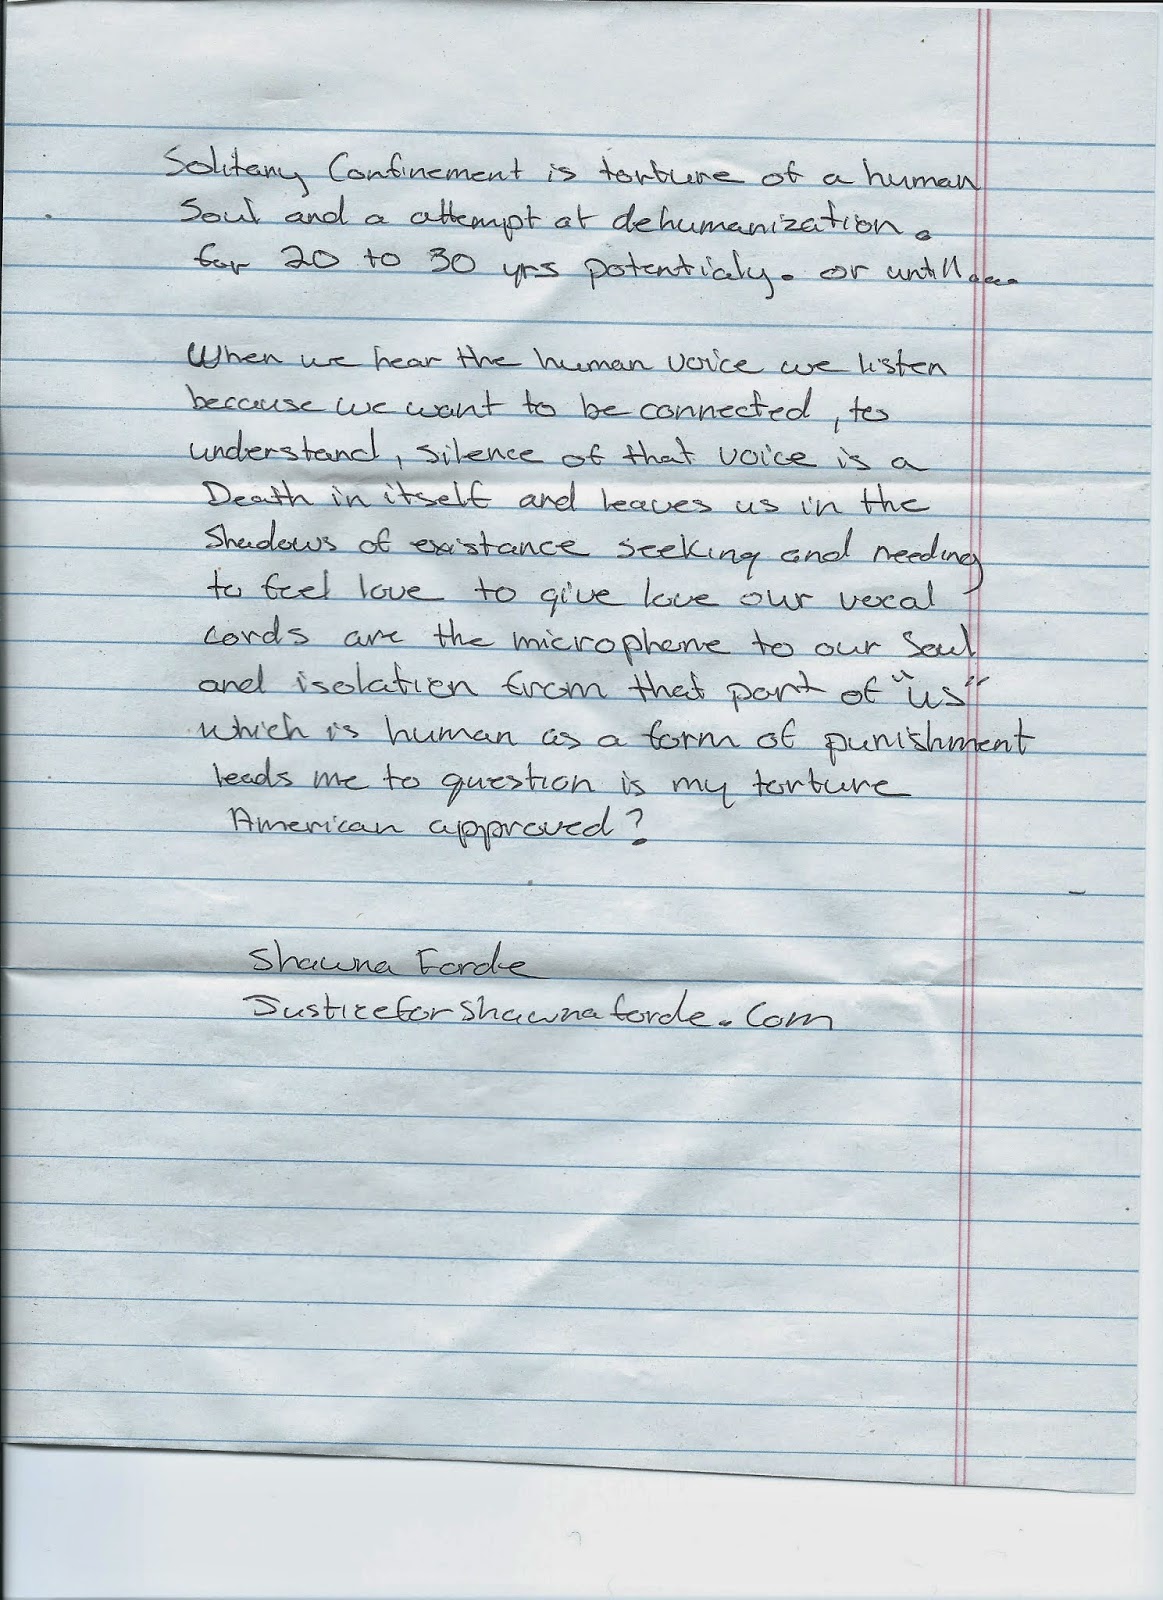 Solitary Confinement is torture of a human
Soul and a attempt at dehumanization.
for 20 to 30 yrs potentialy. or untill...
When we hear the human voice we listen
because we want to be connected, to
understand, silence of that voice is a
Death in itself and leaves us in the
Shadows of existance seeking and needing
to feel love to give love our vocal
cords are the microphone to our Soul
and isolation from that part of "us"
which is human as a form of punishment
leads me to question is my torture
American approved?
Shawna Forde
Justiceforshawnaforde.com